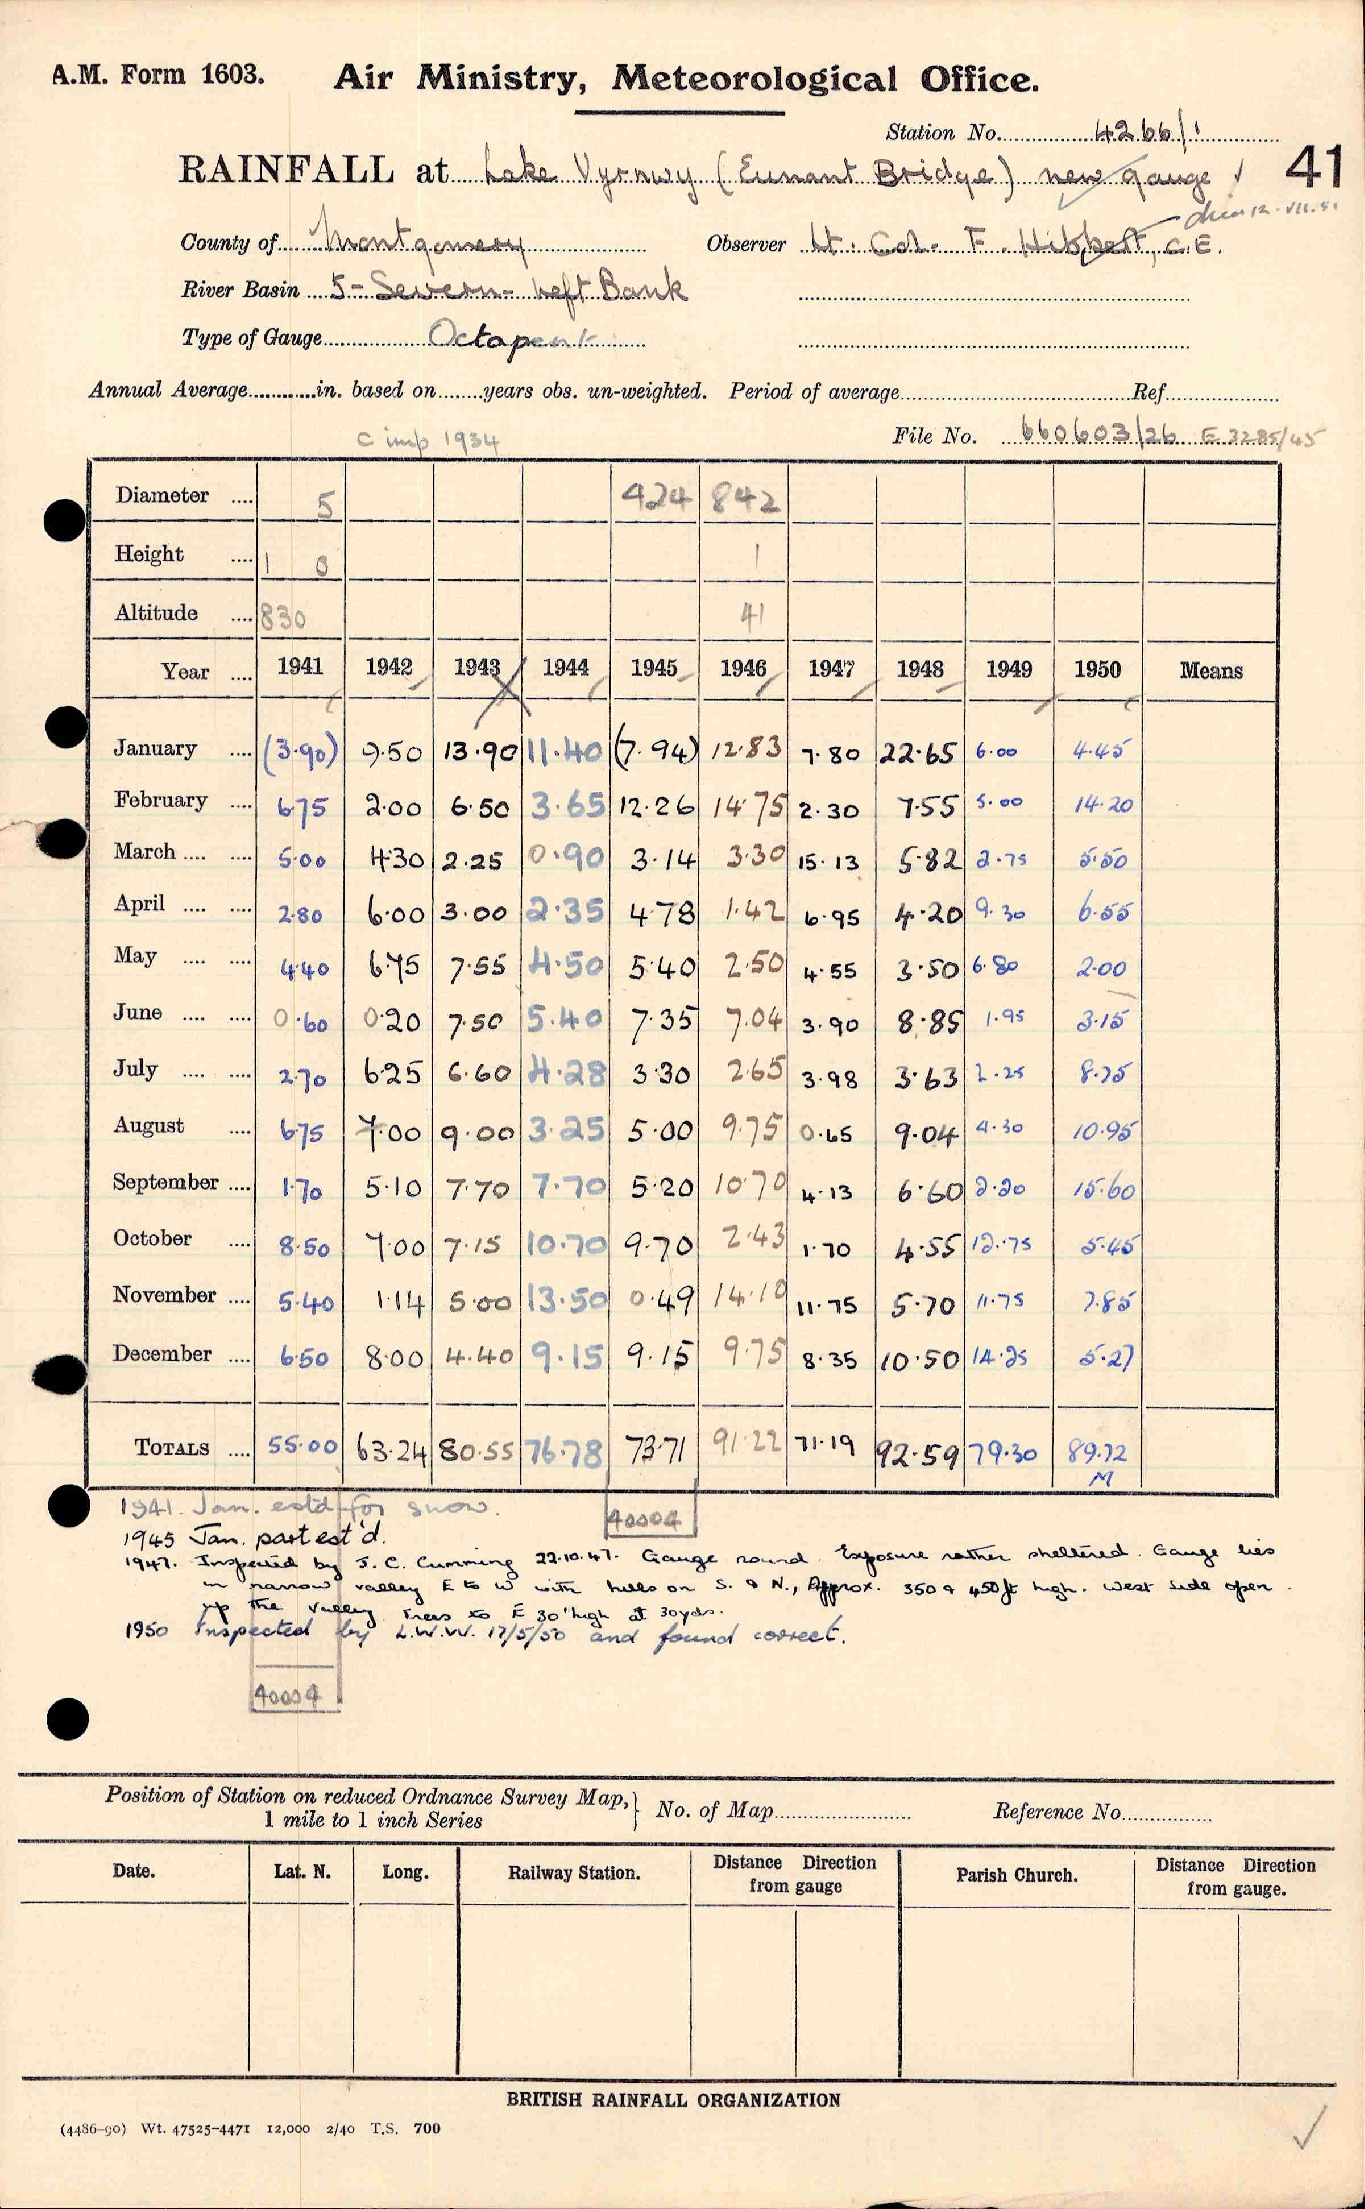 A.M. Form 1603. Air Ministry, Meteorological Office.
Station No. 4266/1
RAINFALL at Lake Vyrnwy (Eunant Bridge) new gauge 41
County of Montgomery Observer Lt. Col. F. Hibbert, C.E.
River Basin 5 - Severn - Left Bank
Type of Gauge Octapent
Annual Average............in. based on........years obs. un-weighted. Period of average........................Ref...............
File No. 660603/26 E 2285/45
1934
Diameter .... 5 424 842
Height .... 1 0 1
Altitude .... 830 41
Year .... 1941 1942 1943 1944 1945 1946 1947 1948 1949 1950 Means
January .... (3.90) 9.50 13.90 11.40 (7.94) 12.83 7.80 22.65 6.00 4.45
February .... 6.75 2.00 6.50 3.65 12.26 14.75 2.30 7.55 5.00 14.20
March .... .... 5.00 4.30 2.25 0.90 3.14 3.30 15.13 5.82 2.75 5.50
April .... .... 2.80 6.00 3.00 2.35 4.78 1.42 6.95 4.20 9.30 6.55
May .... .... 4.40 6.75 7.55 4.50 5.40 2.50 4.55 3.50 6.80 2.00
June .... .... 0.60 0.20 7.50 5.40 7.35 7.04 3.90 8.85 1.95 3.15
July .... .... 2.70 6.25 6.60 4.28 3.30 2.65 3.98 3.63 2.25 8.75
August .... 6.75 7.00 9.00 3.25 5.00 9.75 0.65 9.04 4.30 10.95
September .... 1.70 5.10 7.70 7.70 5.20 10.70 4.13 6.60 2.20 15.60
October .... 8.50 7.00 7.15 10.70 9.70 2.43 1.70 4.55 12.75 5.45
November .... 5.40 1.14 5.00 13.50 0.49 14.10 11.75 5.70 11.75 7.85
December .... 6.50 8.00 4.40 9.15 9.15 9.75 8.35 10.50 14.25 5.27
TOTALS .... 55.00 63.24 80.55 76.78 73.71 91.22 71.19 92.59 79.30 89.72
M
1941. Jan. est'd for snow. 40004
1945 Jan. part est'd.
1947. Inspected by J. C. Cumming 22.10.47. Gauge round. Exposure rather sheltered. Gauge lies
in narrow valley E to W with hills on S. & N., Approx. 350 & 450 ft high. West side open
up the valley. Trees to E 30' high at 30yds.
1950 Inspected by L.W.W. 17/5/50 and found correct.
40004
Position of Station on reduced Ordnance Survey Map, 1 mile to 1 inch Series } No. of Map........................ Reference No...............
Date. Lat. N. Long. Railway Station. Distance Direction from gauge Parish Church. Distance Direction from gauge.
BRITISH RAINFALL ORGANIZATION
(4486-90) Wt. 47525-4471 12,000 2/40 T.S. 700